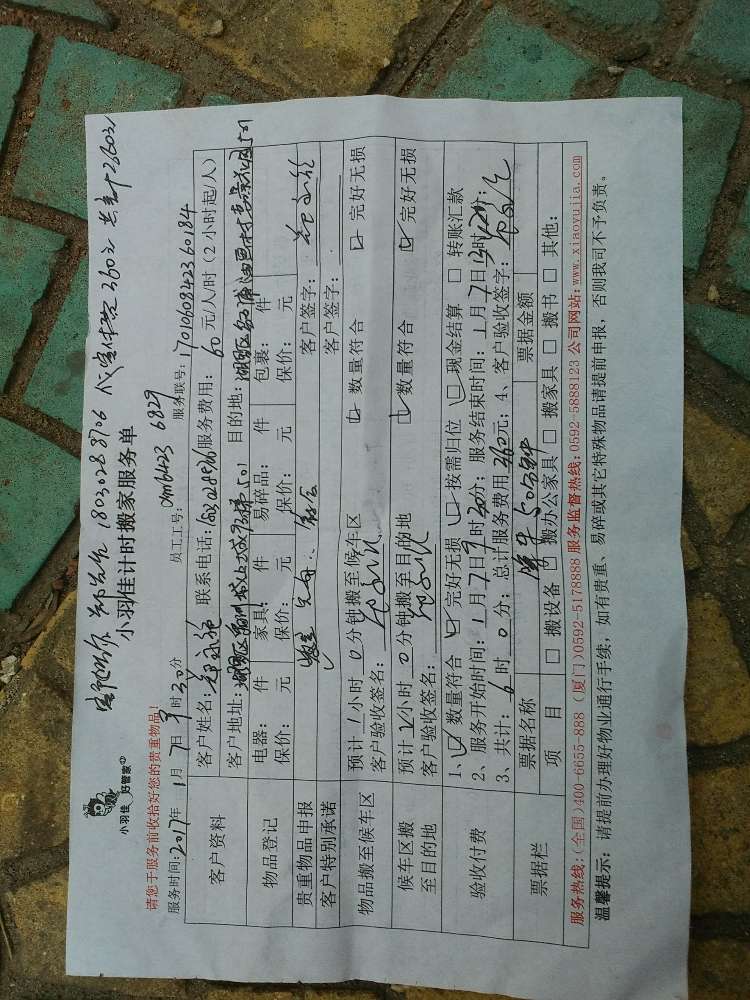 18030288706 360元 共计2660元
小羽佳 好管家
小羽佳计时搬家服务单
请您于服务前收拾好您的贵重物品!
服务时间:2017年1月7日9时30分 员工工号: 6829 服务联号:1701060842360184
客户资料 客户姓名: 联系电话: 服务费用:60元/人/时(2小时起/人)
客户地址:湖里区 501 目的地:湖里区 501
物品登记 电器: 件 家具: 件 易碎品: 件 包裹: 件
保价: 元 保价: 元 保价: 元 保价: 元
贵重物品申报 客户签字:
客户特别承诺 客户签字:
物品搬至候车区 预计1小时0分钟搬至候车区 数量符合 完好无损
客户验收签名:
候车区搬至目的地 预计 小时0分钟搬至目的地 数量符合 完好无损
客户验收签名:
验收付费 1、 数量符合 完好无损 按需归位 现金结算 转账汇款
2、服务开始时间:1月7日9时30分;服务结束时间:1月7日 时 分;
3、共计:6时0分;总计服务费用 元;4、客户验收签字:
票据栏 票据名称 票据金额
项 目 搬设备 搬办公家具 搬家具 搬书 其他:
服务热线:(全国)400-6655-888 (厦门)0592-5178888 服务监督热线:0592-5888123 公司网站:www.xiaoyujia.com
温馨提示:请提前办理好物业通行手续,如有贵重、易碎或其它特殊物品请提前申报,否则我司不予负责。